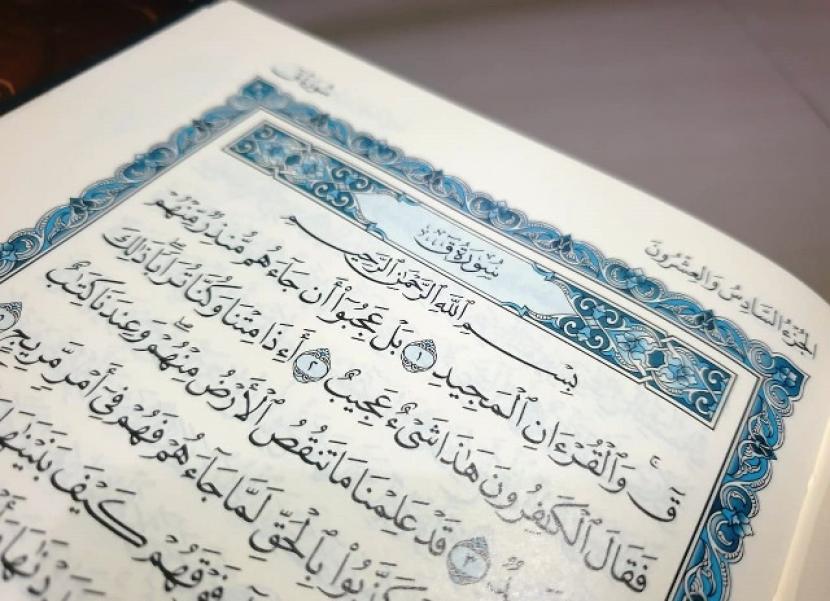 الجُزْءُ السَّادِسُ وَالعِشْرُونَ
سُورَةُ قٓ
سُورَةُ قٓ
بِسْمِ ٱللَّهِ ٱلرَّحْمَٰنِ ٱلرَّحِيمِ
قٓ وَٱلْقُرْءَانِ ٱلْمَجِيدِ ١ بَلْ عَجِبُوٓا۟ أَن جَآءَهُم مُّنذِرٌ مِّنْهُمْ
فَقَالَ ٱلْكَٰفِرُونَ هَٰذَا شَىْءٌ عَجِيبٌ ٢ أَءِذَا مِتْنَا وَكُنَّا تُرَابًا ۖ ذَٰلِكَ
٣ قَدْ عَلِمْنَا مَا تَنقُصُ ٱلْأَرْضُ مِنْهُمْ ۖ وَعِندَنَا كِتَٰبٌ
كَذَّبُوا۟ بِٱلْحَقِّ لَمَّا جَآءَهُمْ فَهُمْ فِىٓ أَمْرٍ مَّرِيجٍ
فَوْقَهُمْ كَيْفَ بَنَيْنَٰهَا